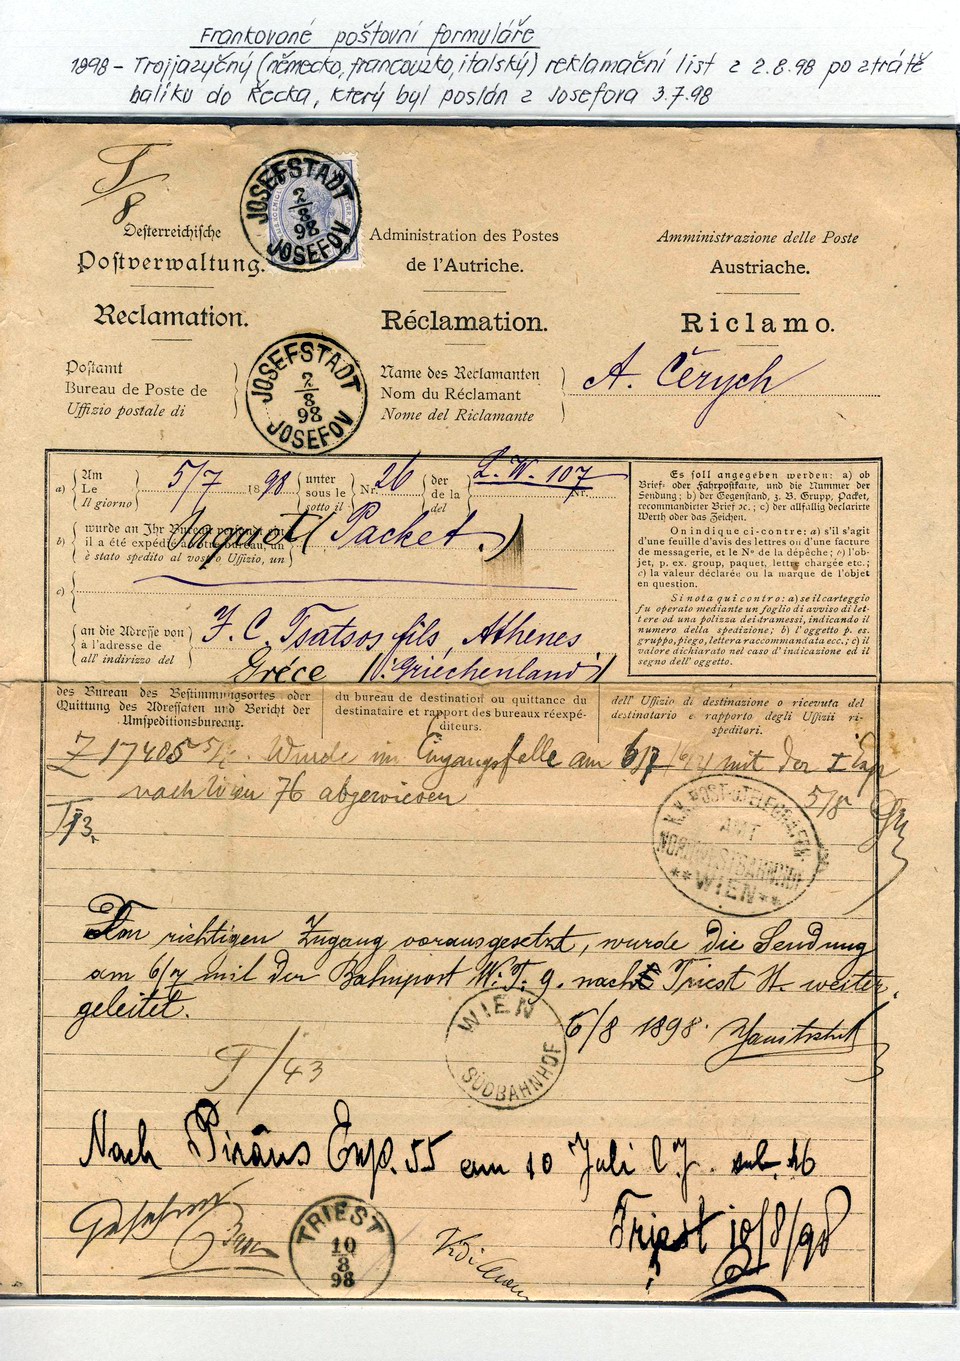 Frankované poštovní formuláře
1898 – Trojjazyčný (německo, francouzko, italský) reklamační list z 2.8.98 po ztrátě
balíku do Řecka, který byl poslán z Josefova 3.7.98
T/8
JOSEFSTADT
2/8
98
JOSEFOV
Oesterreichische
Postverwaltung.
Reclamation.
Administration des Postes
de l'Autriche.
Réclamation.
Amministrazione delle Poste
Austriache.
Riclamo.
Postamt
Bureau de Poste de
Uffizio postale di
JOSEFSTADT
2/8
98
JOSEFOV
Name des Reclamanten
Nom du Réclamant
Nome del Riclamante
A. Čerych
a) Am
Le
Il giorno
5/7 1898
unter
sous le
sotto il
Nr. 26
der
de la
del
L. W. 107
Nr.
b) wurde an Ihr Bureau
il a été expédié à votre bureau, un
è stato spedito al vostro Uffizio, un
(Packet.)
c)
an die Adresse von
à l'adresse de
all' indirizzo del
F. C. Tsatsos fils, Athènes
Grèce (Griechenland)
Es soll angegeben werden: a) ob
Brief- oder Fahrpostkarte, und die Nummer der
Sendung; b) der Gegenstand, z. B. Grupp, Packet,
recommandirter Brief ꝛc.; c) der allfällig declarirte
Werth oder das Zeichen.
On indique ci-contre: a) s'il s'agit
d'une feuille d'avis des lettres ou d'une facture
de messagerie, et le Nº de la dépêche; b) l'ob-
jet, p. ex. group, paquet, lettre chargée etc.;
c) la valeur déclarée ou la marque de l'objet
en question.
Si nota qui contro: a) se il carteggio
fu operato mediante un foglio di avviso di let-
tere od una polizza dei dramessi, indicando il
numero della spedizione; b) l'oggetto p. es.
gruppo, piego, lettera raccomandata ecc.; c) il
valore dichiarato nel caso d'indicazione ed il
segno dell' oggetto.
des Bureau des Bestimmungsortes oder
Quittung des Adressaten und Bericht der
Umspeditionsbureaux.
du bureau de destination ou quittance du
destinataire et rapport des bureaux réexpé-
diteurs.
dell' Uffizio di destinazione o ricevuta del
destinatario e rapporto degli Uffizii ri-
speditori.
Z 17405 5/8. Wurde im Eingangsfalle am 6/7 mit der I Exp
nach Wien 76 abgewiesen
5/8
K.K. POST- u. TELEGRAFEN-
AMT
NORDWESTBAHNHOF
**WIEN**
Den richtigen Zugang vorausgesetzt, wurde die Sendung
am 6/7 mit der Bahnpost W. T. 9. nach Triest II. weiter
geleitet.
6/8 1898.
WIEN
SÜDBAHNHOF
T/43
Nach Piräus Exp. 55 am 10 Juli l. J. sub. 26
Triest 10/8/98
TRIEST
10
8
98